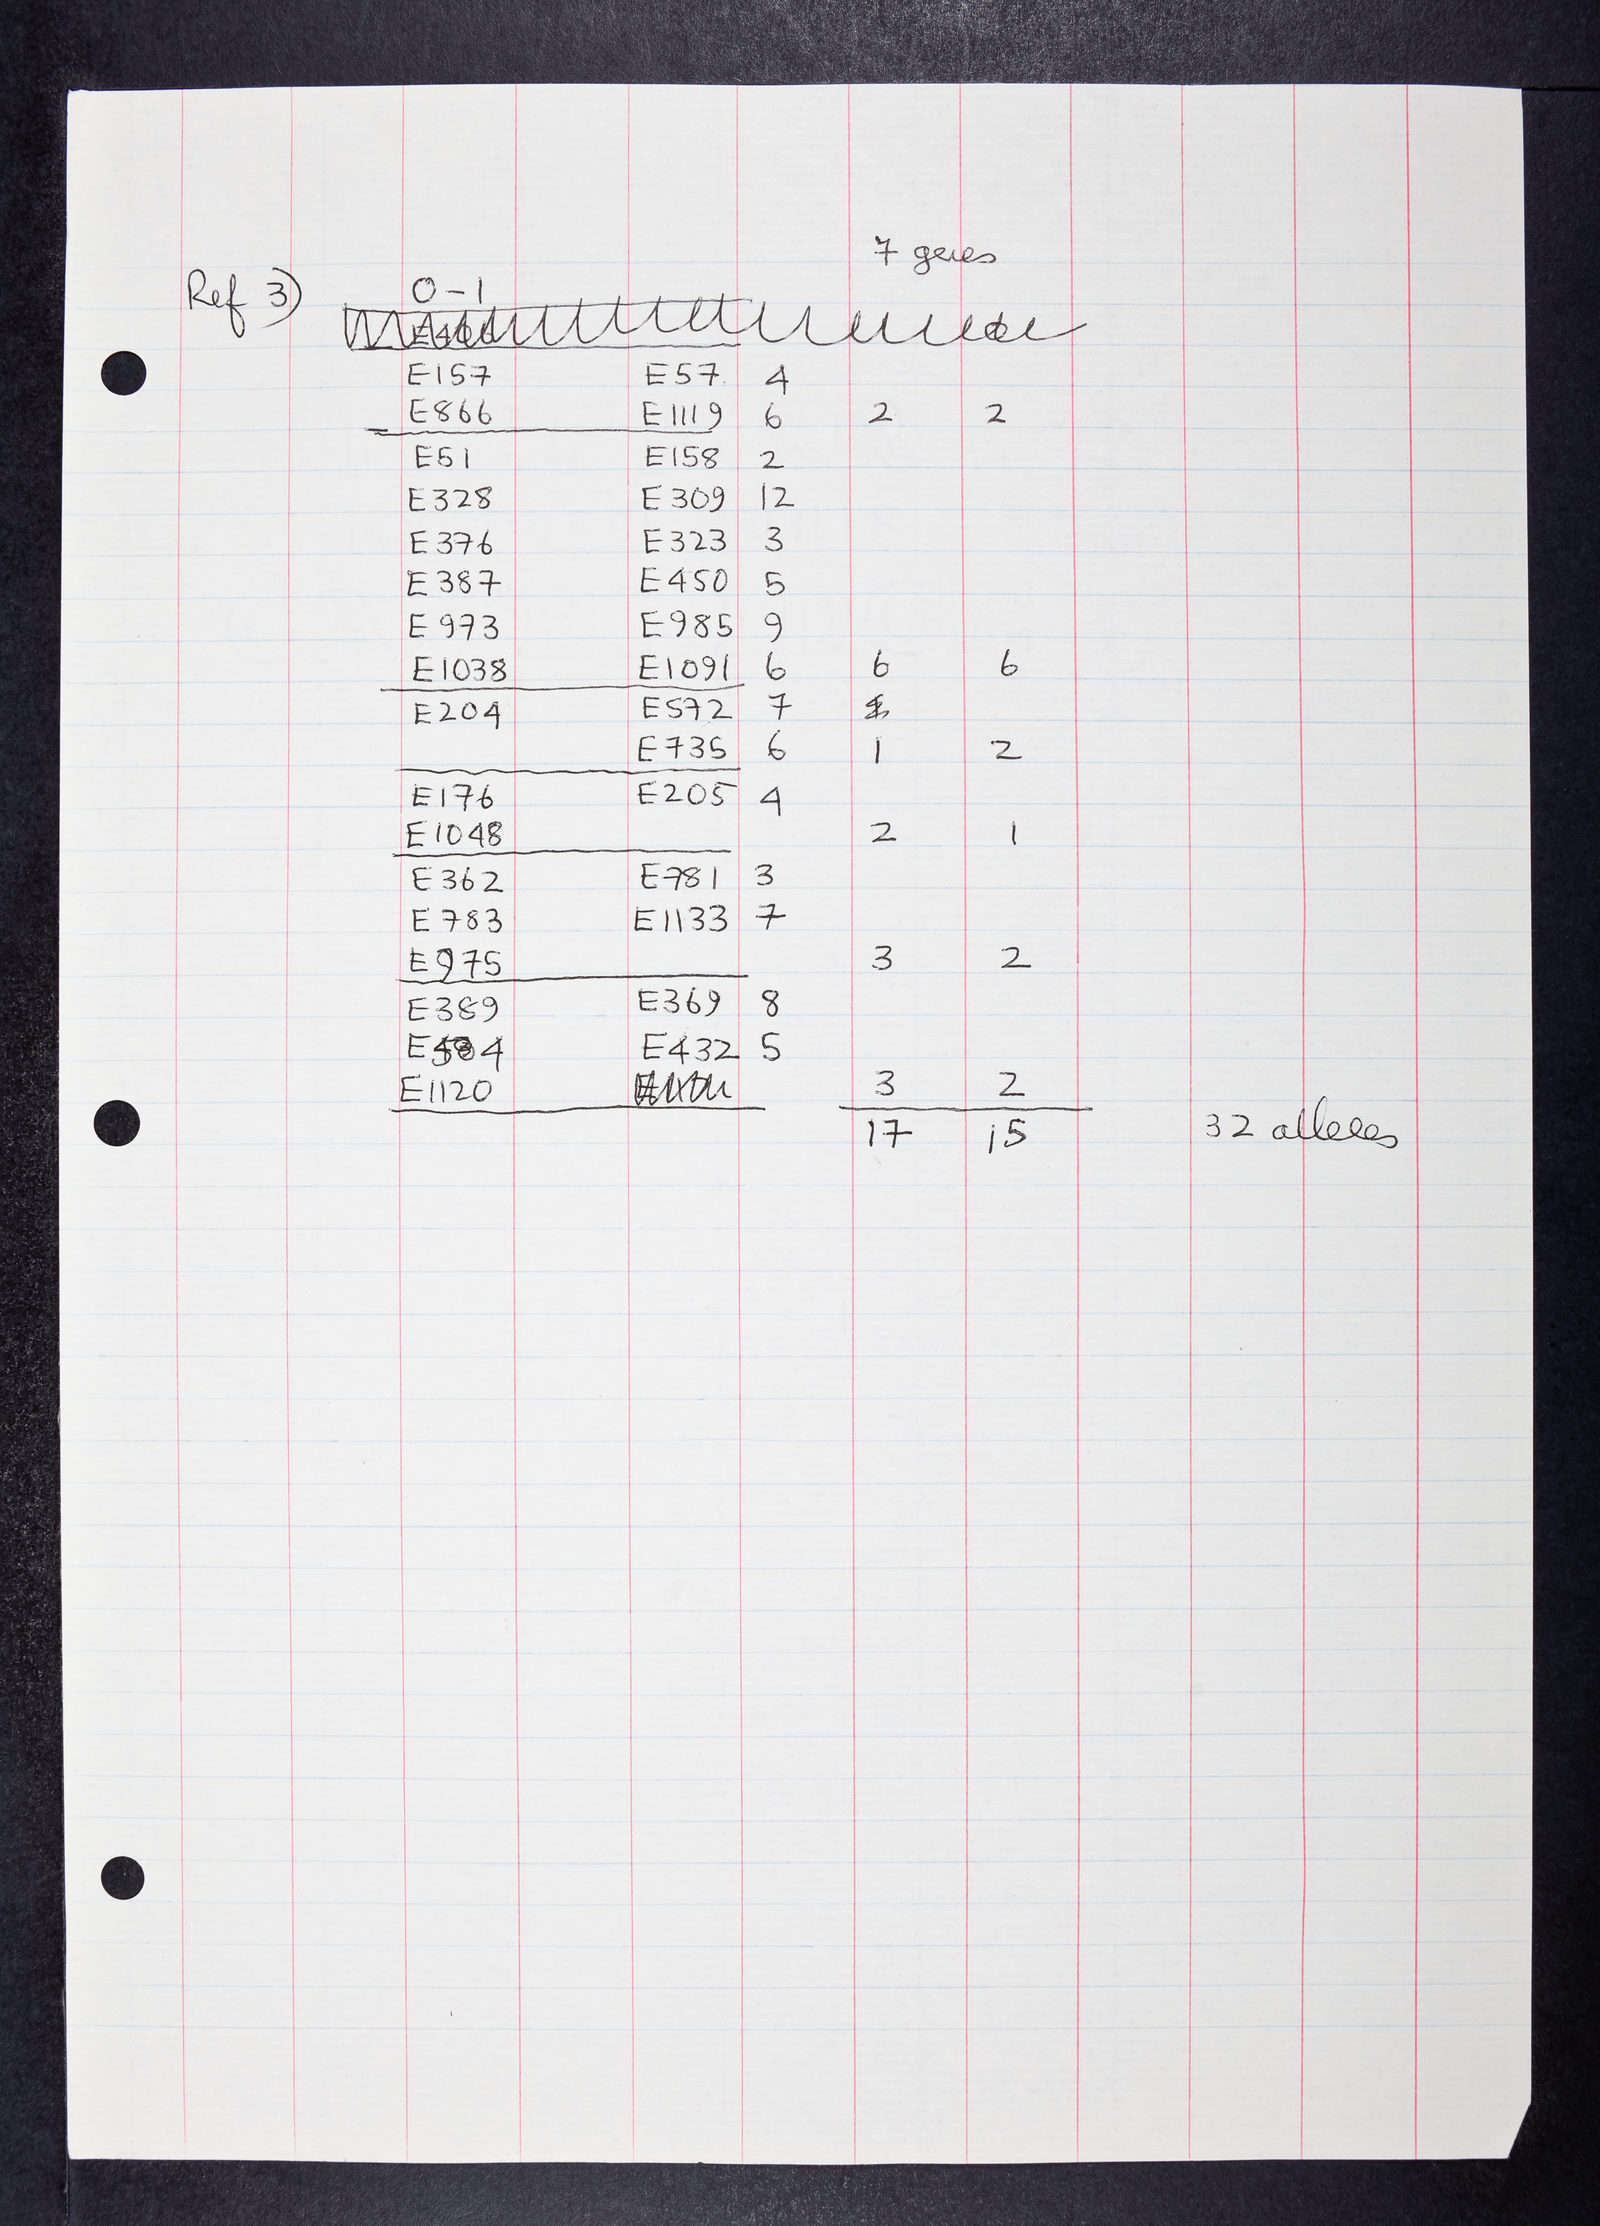 7 genes
Ref 3) 0-1
E157 E57 4
E866 E1119 6 2 2
E51 E158 2
E328 E309 12
E376 E323 3
E387 E450 5
E973 E985 9
E1038 E1091 6 6 6
E204 E572 7
E735 6 1 2
E176 E205 4
E1048 2 1
E362 E781 3
E783 E1133 7
E975 3 2
E389 E369 8
E432 5
E1120 3 2
17 15 32 alleles